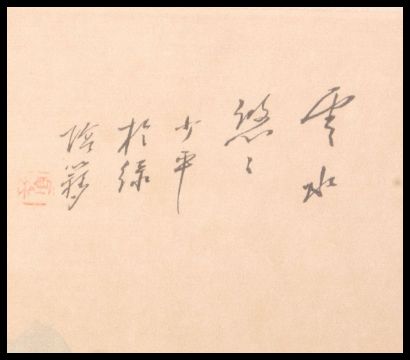 雲水
悠〻
少平
於綠
陰簃